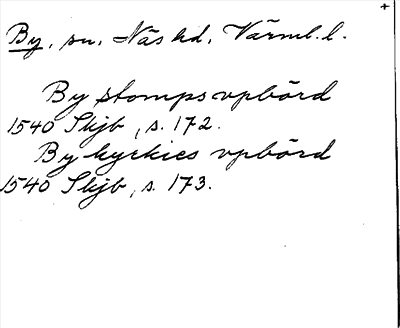 By, sn, Näs hd, Värml. l.
By stomps vpbörd
1540 Skjb, s. 172.
By kyrkies vpbörd
1540 Skjb, s. 173.